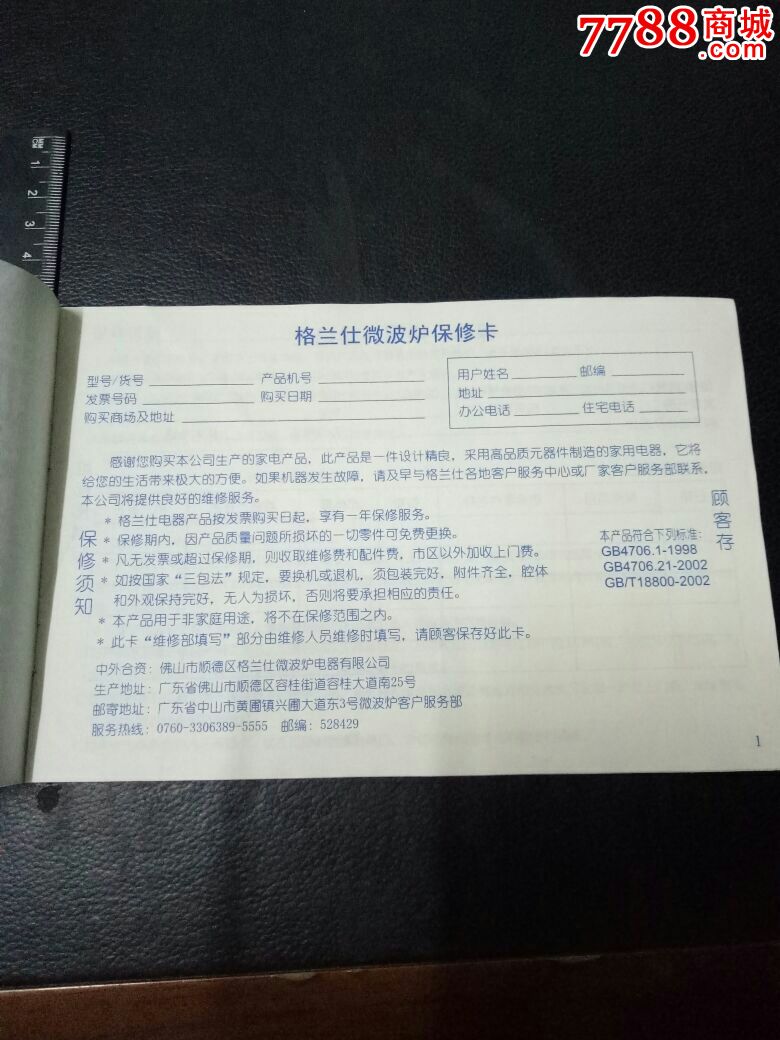 7788商城
.com
MM
CM
1
2
3
4
格兰仕微波炉保修卡
型号/货号 产品机号
发票号码 购买日期
购买商场及地址
用户姓名 邮编
地址
办公电话 住宅电话
感谢您购买本公司生产的家电产品，此产品是一件设计精良，采用高品质元器件制造的家用电器，它将
给您的生活带来极大的方便。如果机器发生故障，请及早与格兰仕各地客户服务中心或厂家客户服务部联系，
本公司将提供良好的维修服务。
保修须知
* 格兰仕电器产品按发票购买日起，享有一年保修服务。
* 保修期内，因产品质量问题所损坏的一切零件可免费更换。
* 凡无发票或超过保修期，则收取维修费和配件费，市区以外加收上门费。
* 如按国家“三包法”规定，要换机或退机，须包装完好，附件齐全，腔体
和外观保持完好，无人为损坏，否则将要承担相应的责任。
* 本产品用于非家庭用途，将不在保修范围之内。
* 此卡“维修部填写”部分由维修人员维修时填写，请顾客保存好此卡。
本产品符合下列标准：
GB4706.1-1998
GB4706.21-2002
GB/T18800-2002
顾客存
中外合资：佛山市顺德区格兰仕微波炉电器有限公司
生产地址：广东省佛山市顺德区容桂街道容桂大道南25号
邮寄地址：广东省中山市黄圃镇兴圃大道东3号微波炉客户服务部
服务热线：0760-3306389-5555 邮编：528429
1